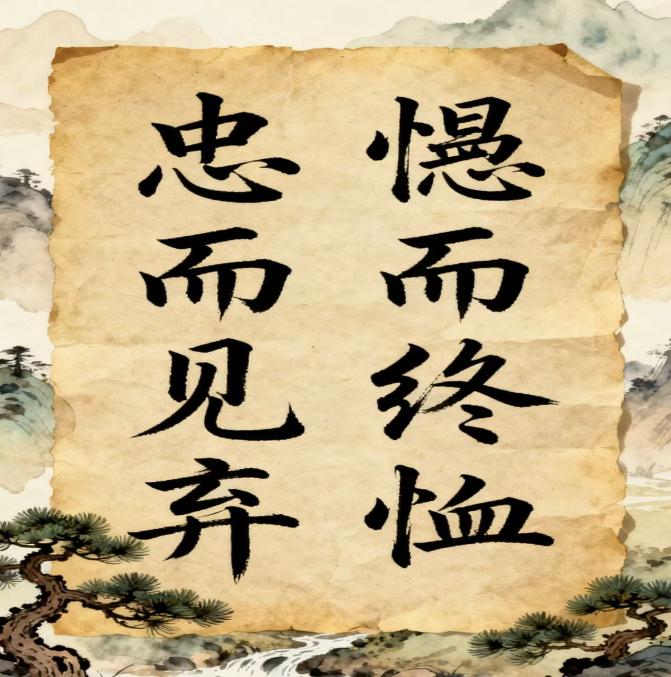 而终恤
忠而见弃